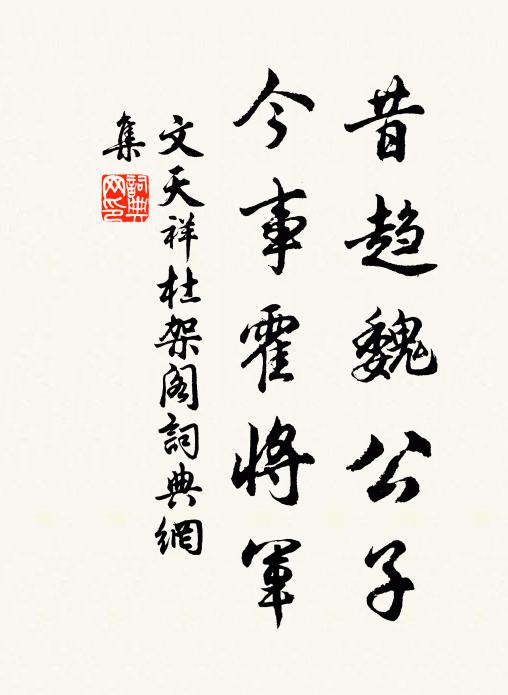 昔趨魏公子
今事霍將軍
文天祥杜架阁詞典網
集
詞典
网印